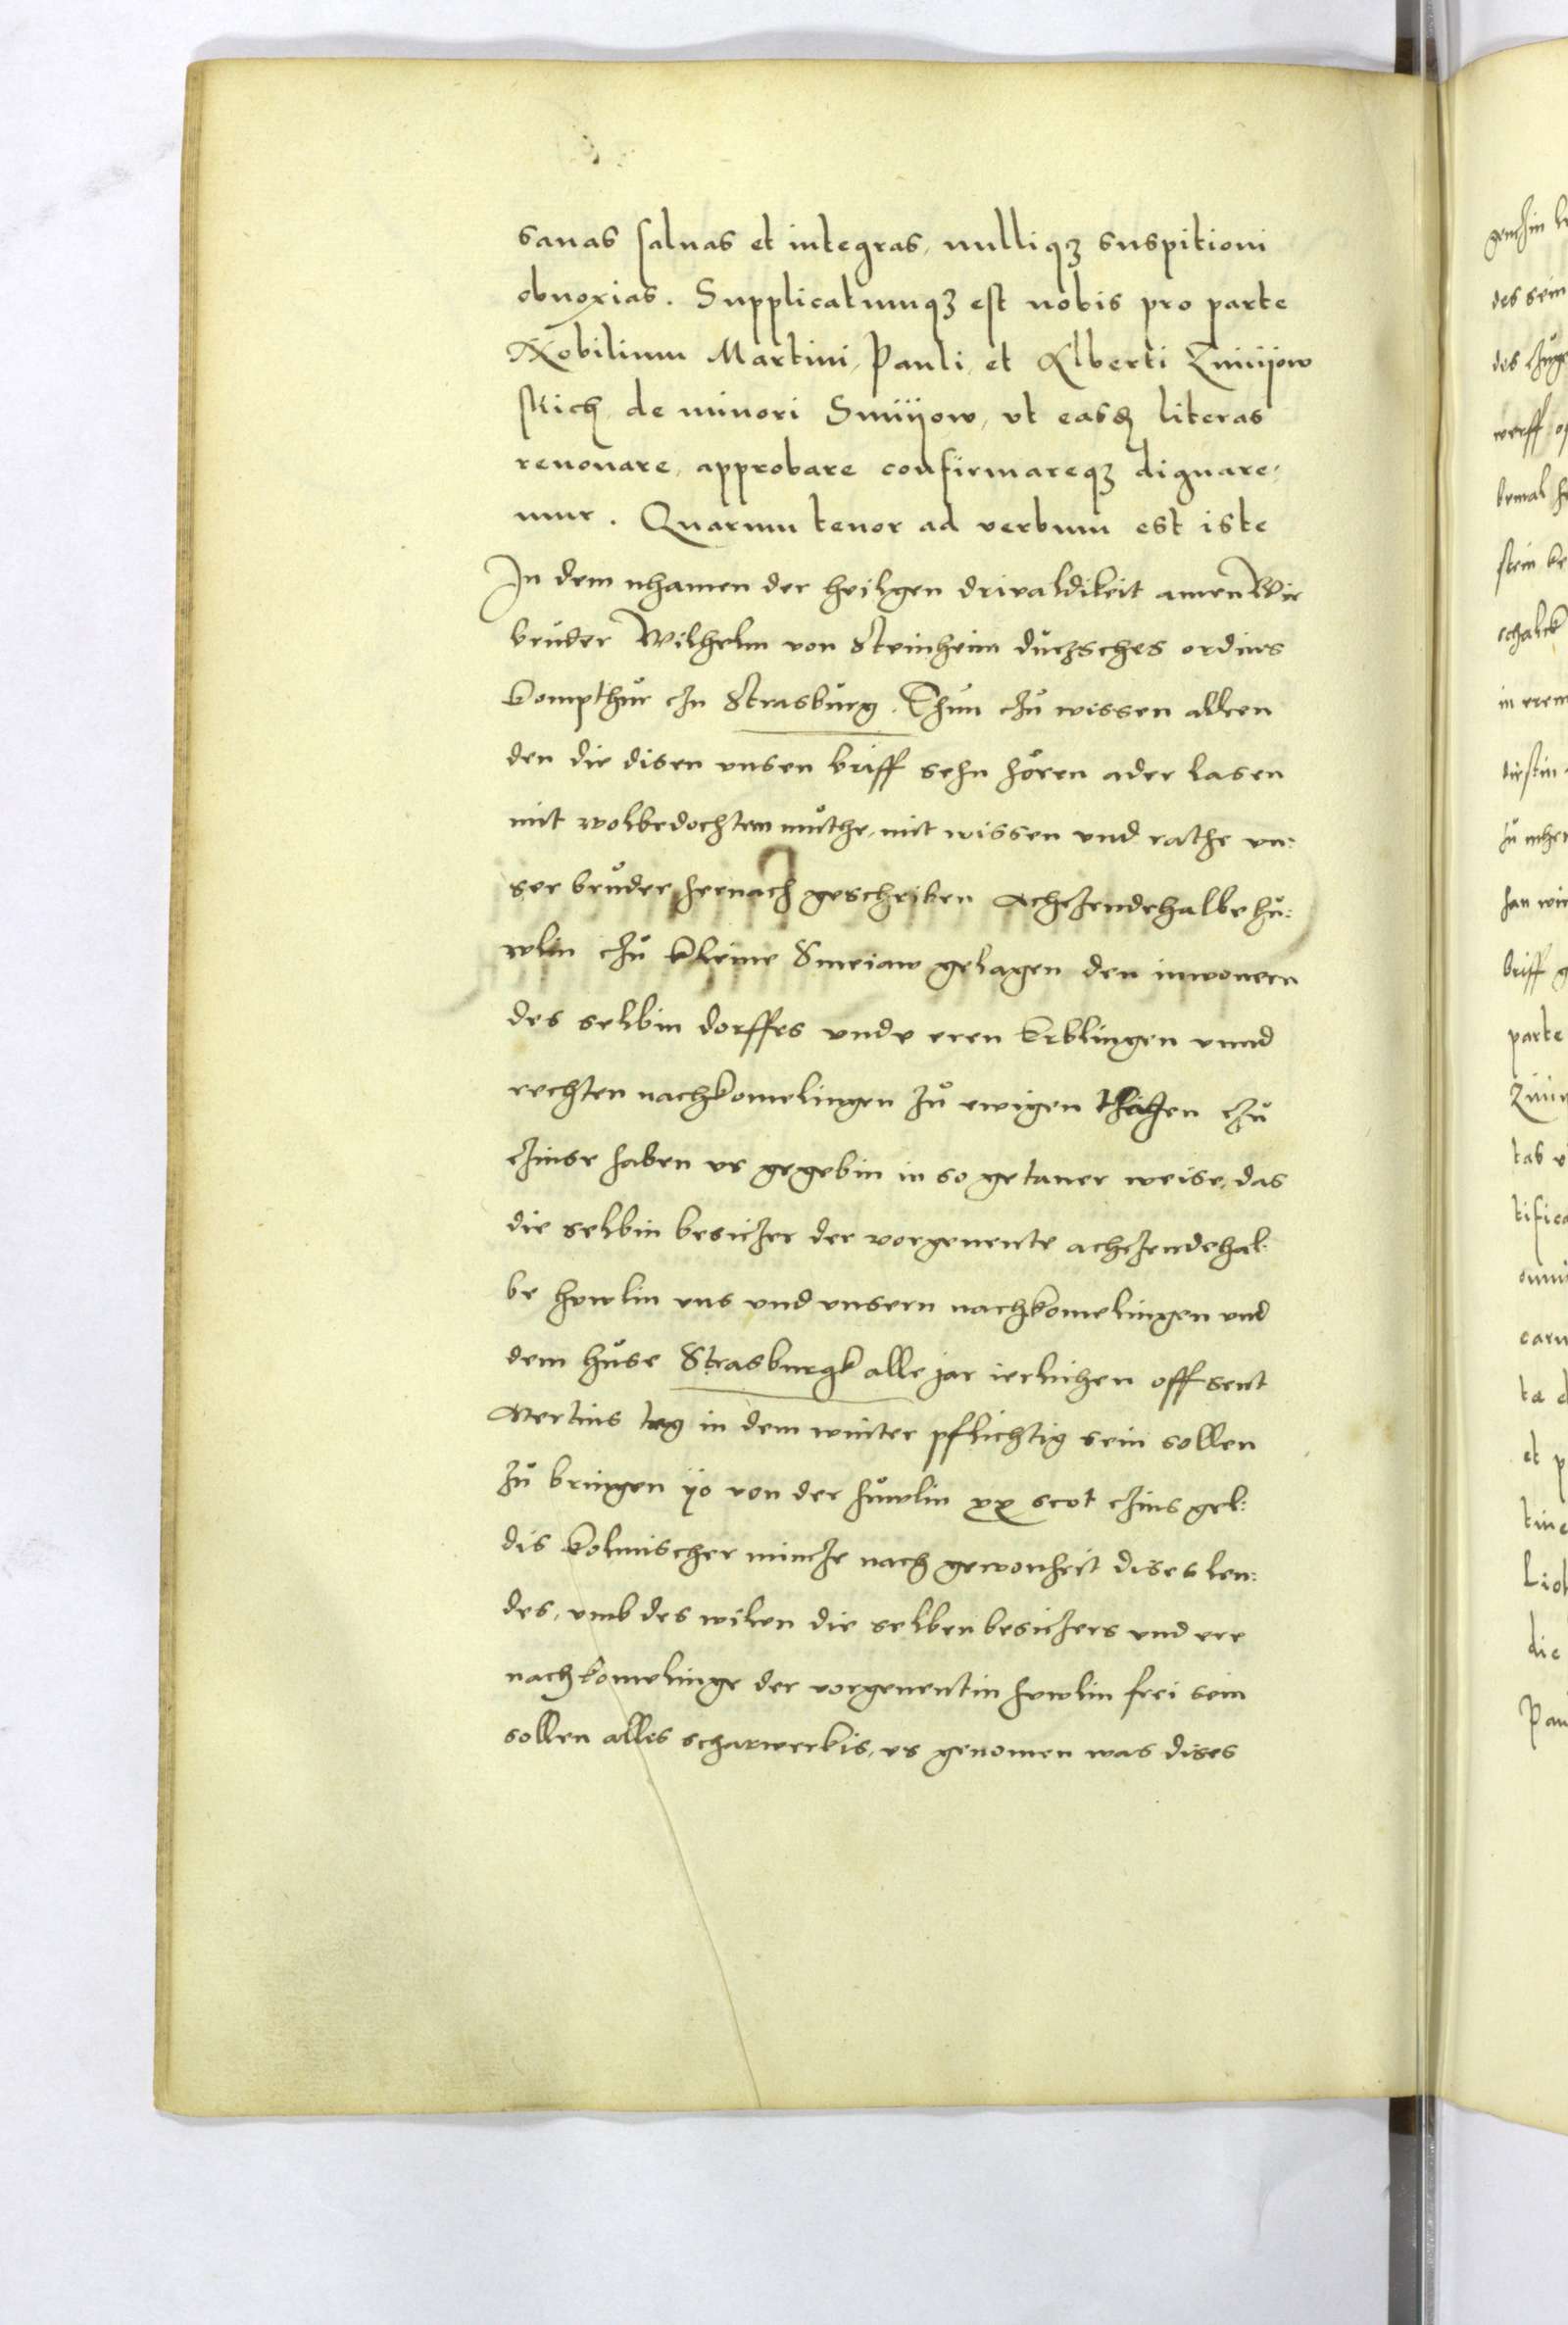 sanas salvas et integras, nulliqꝫ suspitioni
obnoxias. Supplicatumqꝫ est nobis pro parte
Nobilium Martini, Pauli, et Alberti Zmiijow
skich de minori Smiijow, vt easdem literas
renovare, approbare confirmareqꝫ dignare-
mur. Quarum tenor ad verbum est iste
In dem nhamen der heilgen drivaldikeit amen Wir
brůder Wilhelm von Steinheim důczsches ordins
kompthůr czu Strasbůrg. Thůn czů wissen alleen
den die disen vnsen briff sehn hören ader lasen
mit wolbedochtem můthe, mit wissen vnd rathe vn:
ser brůder hernach geschriben Achczendehalbe hů:
wlin czů kleine Smeiaw gelagen den inwonern
des selbin dorffes vnde eren Erblingen vnnd
rechten nachkomelingen zů ewigen czů
czinse haben vs gegebin in so getaner weise, das
die selbin besiczer der vorgenente achczendehal:
be huwlin vns vnd vnsern nachkomelingen vnd
dem hůse Strasburgk alle jar ierlichen off sent
Mertins tag in dem winter pflichtig sein sollen
zů bringen ÿo von der hůwlin xx scot czins gel:
dis kolmischer mincze nach gewonheit dises lan:
des, vmb des wilen die selben besiczers vnd ere
nachkomelinge der vorgenentin huwlin frei sein
sollen alles scharwerkis, vs genomen was dises